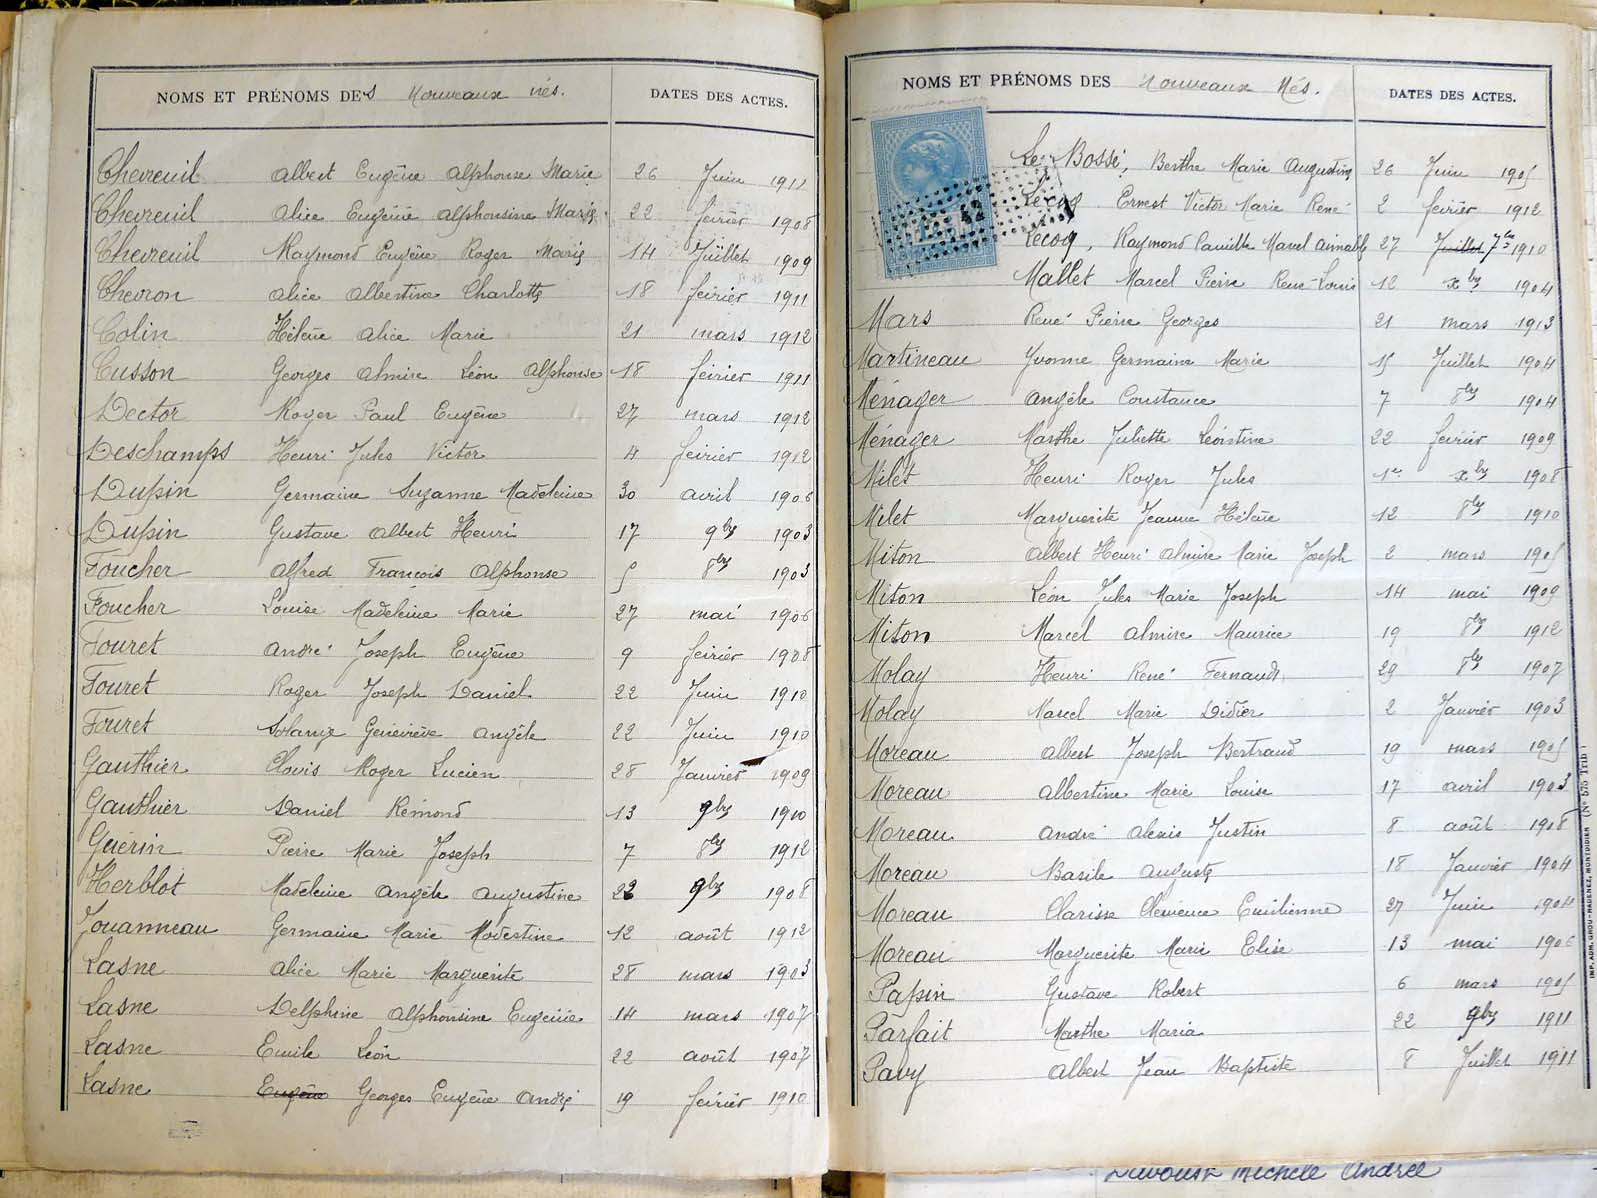 NOMS ET PRÉNOMS DES Nouveaux nés. DATES DES ACTES.
Chevreuil Albert Eugène Alphonse Marie 26 Juin 1911
Chevreuil Alice Eugénie Alphonsine Marie 22 février 1908
Chevreuil Raymond Eugène Roger Marie 14 Juillet 1909
Chevron Alice Albertine Charlotte 18 février 1911
Colin Hélène Alice Marie 21 mars 1912
Cusson Georges Almire Léon Alphonse 18 février 1911
Dector Roger Paul Eugène 27 mars 1912
Deschamps Henri Jules Victor 4 février 1912
Dupin Germaine Suzanne Madeleine 30 avril 1906
Dupin Gustave Albert Henri 17 9bre 1903
Foucher Alfred François Alphonse 5 8bre 1903
Foucher Louise Madeleine Marie 27 mai 1906
Fouret André Joseph Eugène 9 février 1908
Fouret Roger Joseph Daniel 22 Juin 1910
Fouret Solange Geneviève Angèle 22 Juin 1910
Gauthier Clovis Roger Lucien 28 Janvier 1909
Gauthier Daniel Rémond 13 9bre 1910
Guérin Pierre Marie Joseph 7 8bre 1912
Herblot Madeleine Angèle Augustine 22 9bre 1908
Jouanneau Germaine Marie Modestine 12 août 1912
Lasne Alice Marie Marguerite 28 mars 1903
Lasne Delphine Alphonsine Eugénie 14 mars 1907
Lasne Emile Léon 22 août 1907
Lasne Eugène Georges Eugène André 19 février 1910
NOMS ET PRÉNOMS DES Nouveaux Nés. DATES DES ACTES.
Le Bossé, Berthe Marie Augustine 26 Juin 1905
Lecoq Ernest Victor Marie René 2 février 1912
Lecoq, Raymond Camille Marcel Aimable 27 Juillet 7bre 1910
Mallet Marcel Pierre René-Louis 12 xbre 1904
Mars René Pierre Georges 21 mars 1913
Martineau Yvonne Germaine Marie 15 Juillet 1904
Ménager Angèle Constance 7 8bre 1904
Ménager Marthe Juliette Léontine 22 février 1909
Milet Henri Roger Jules 1er xbre 1908
Milet Marguerite Jeanne Hélène 12 8bre 1910
Miton Albert Henri Almire Marie Joseph 2 mars 1905
Miton Léon Jules Marie Joseph 14 mai 1909
Miton Marcel Almire Maurice 19 8bre 1912
Molay Henri René Fernand 29 8bre 1907
Molay Marcel Marie Didier 2 Janvier 1903
Moreau Albert Joseph Bertrand 19 mars 1905
Moreau Albertine Marie Louise 17 avril 1903
Moreau André Alexis Justin 8 août 1908
Moreau Basile Auguste 18 Janvier 1904
Moreau Clarisse Clémence Emilienne 27 Juin 1904
Moreau Marguerite Marie Elise 13 mai 1906
Papin Gustave Robert 6 mars 1905
Parfait Marthe Maria 22 9bre 1911
Pavy Albert Jean Baptiste 8 Juillet 1911
IMP. ADM. GROU-RADENEZ, MONTDIDIER (N° 575 Trib.)
Davoust Michèle Andrée